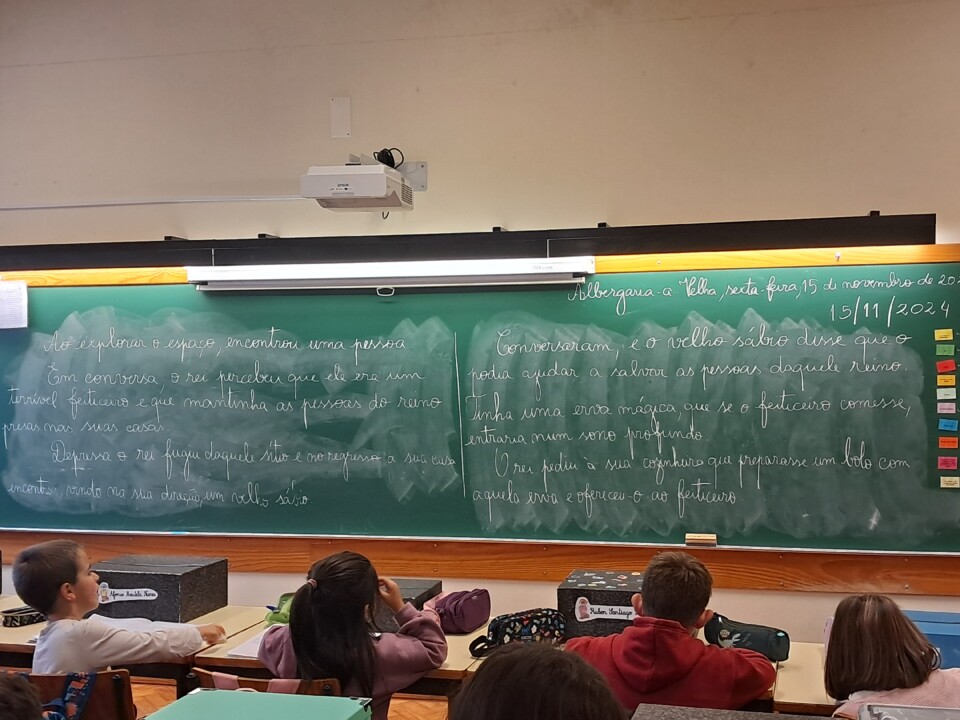 EPSON
Albergaria-a-Velha, sexta-feira, 15 de novembro de 202
15/11/2024
Ao explorar o espaço, encontrou uma pessoa.
Em conversa, o rei percebeu que ele era um
terrível feiticeiro e que mantinha as pessoas do reino
presas nas suas casas.
Depressa o rei fugiu daquele sítio e no regresso a sua casa
encontrou, vindo na sua direção, um velho sábio.
Conversaram, e o velho sábio disse que o
podia ajudar a salvar as pessoas daquele reino.
Tinha uma erva mágica, que se o feiticeiro comesse,
entraria num sono profundo.
O rei pediu à sua cozinheira que preparasse um bolo com
aquela erva e ofereceu-o ao feiticeiro.
Afonso
Ruben Santiago